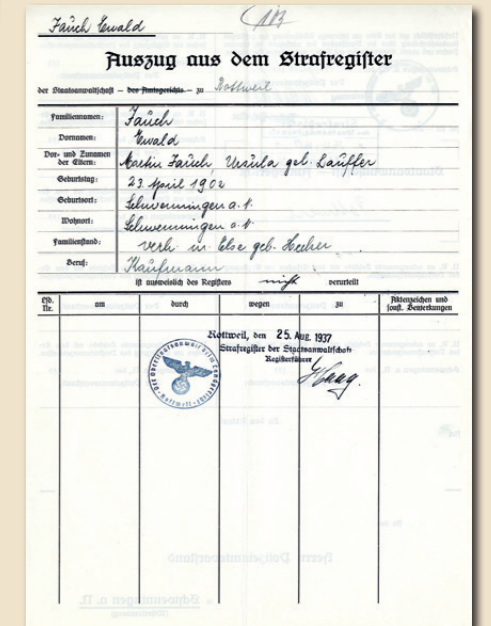 Jauch Ewald
Auszug aus dem Strafregister
der Staatsanwaltschaft – des Amtsgerichts – zu Rottweil
Familiennamen: Jauch
Vornamen: Ewald
Vor- und Zunamen der Eltern: Martin Jauch, Ursula geb. Lauffer
Geburtstag: 23. April 1902
Geburtsort: Schwenningen a. N.
Wohnort: Schwenningen a. N.
Familienstand: verh. m. Else geb.
Beruf: Kaufmann
ist ausweislich des Registers nicht verurteilt
Lfd. Nr. am durch wegen zu Aktenzeichen und sonst. Bemerkungen
Rottweil, den 25. Aug. 1937
Strafregister der Staatsanwaltschaft
Registerführer
Haag.
Der Oberstaatsanwalt beim Landgericht
Rottweil